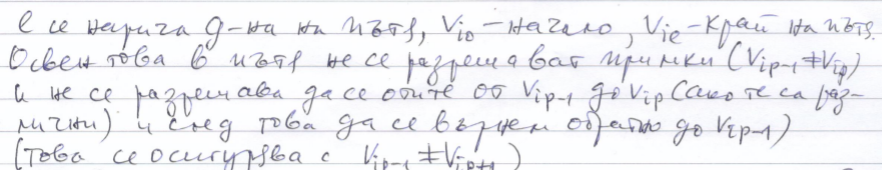 l се нарича д-на на пътя, Vi₀ - начало, Viₑ - край на пътя.
Освен това в пътя не се разрешават примки (Vip-1 ≠ Vip)
и не се разрешава да се отите от Vip-1 до Vip (ако те са раз-
лични) и след това да се върнем обратно до Vip-1)
(това се осигурява с Vip-1 ≠ Vip+1)